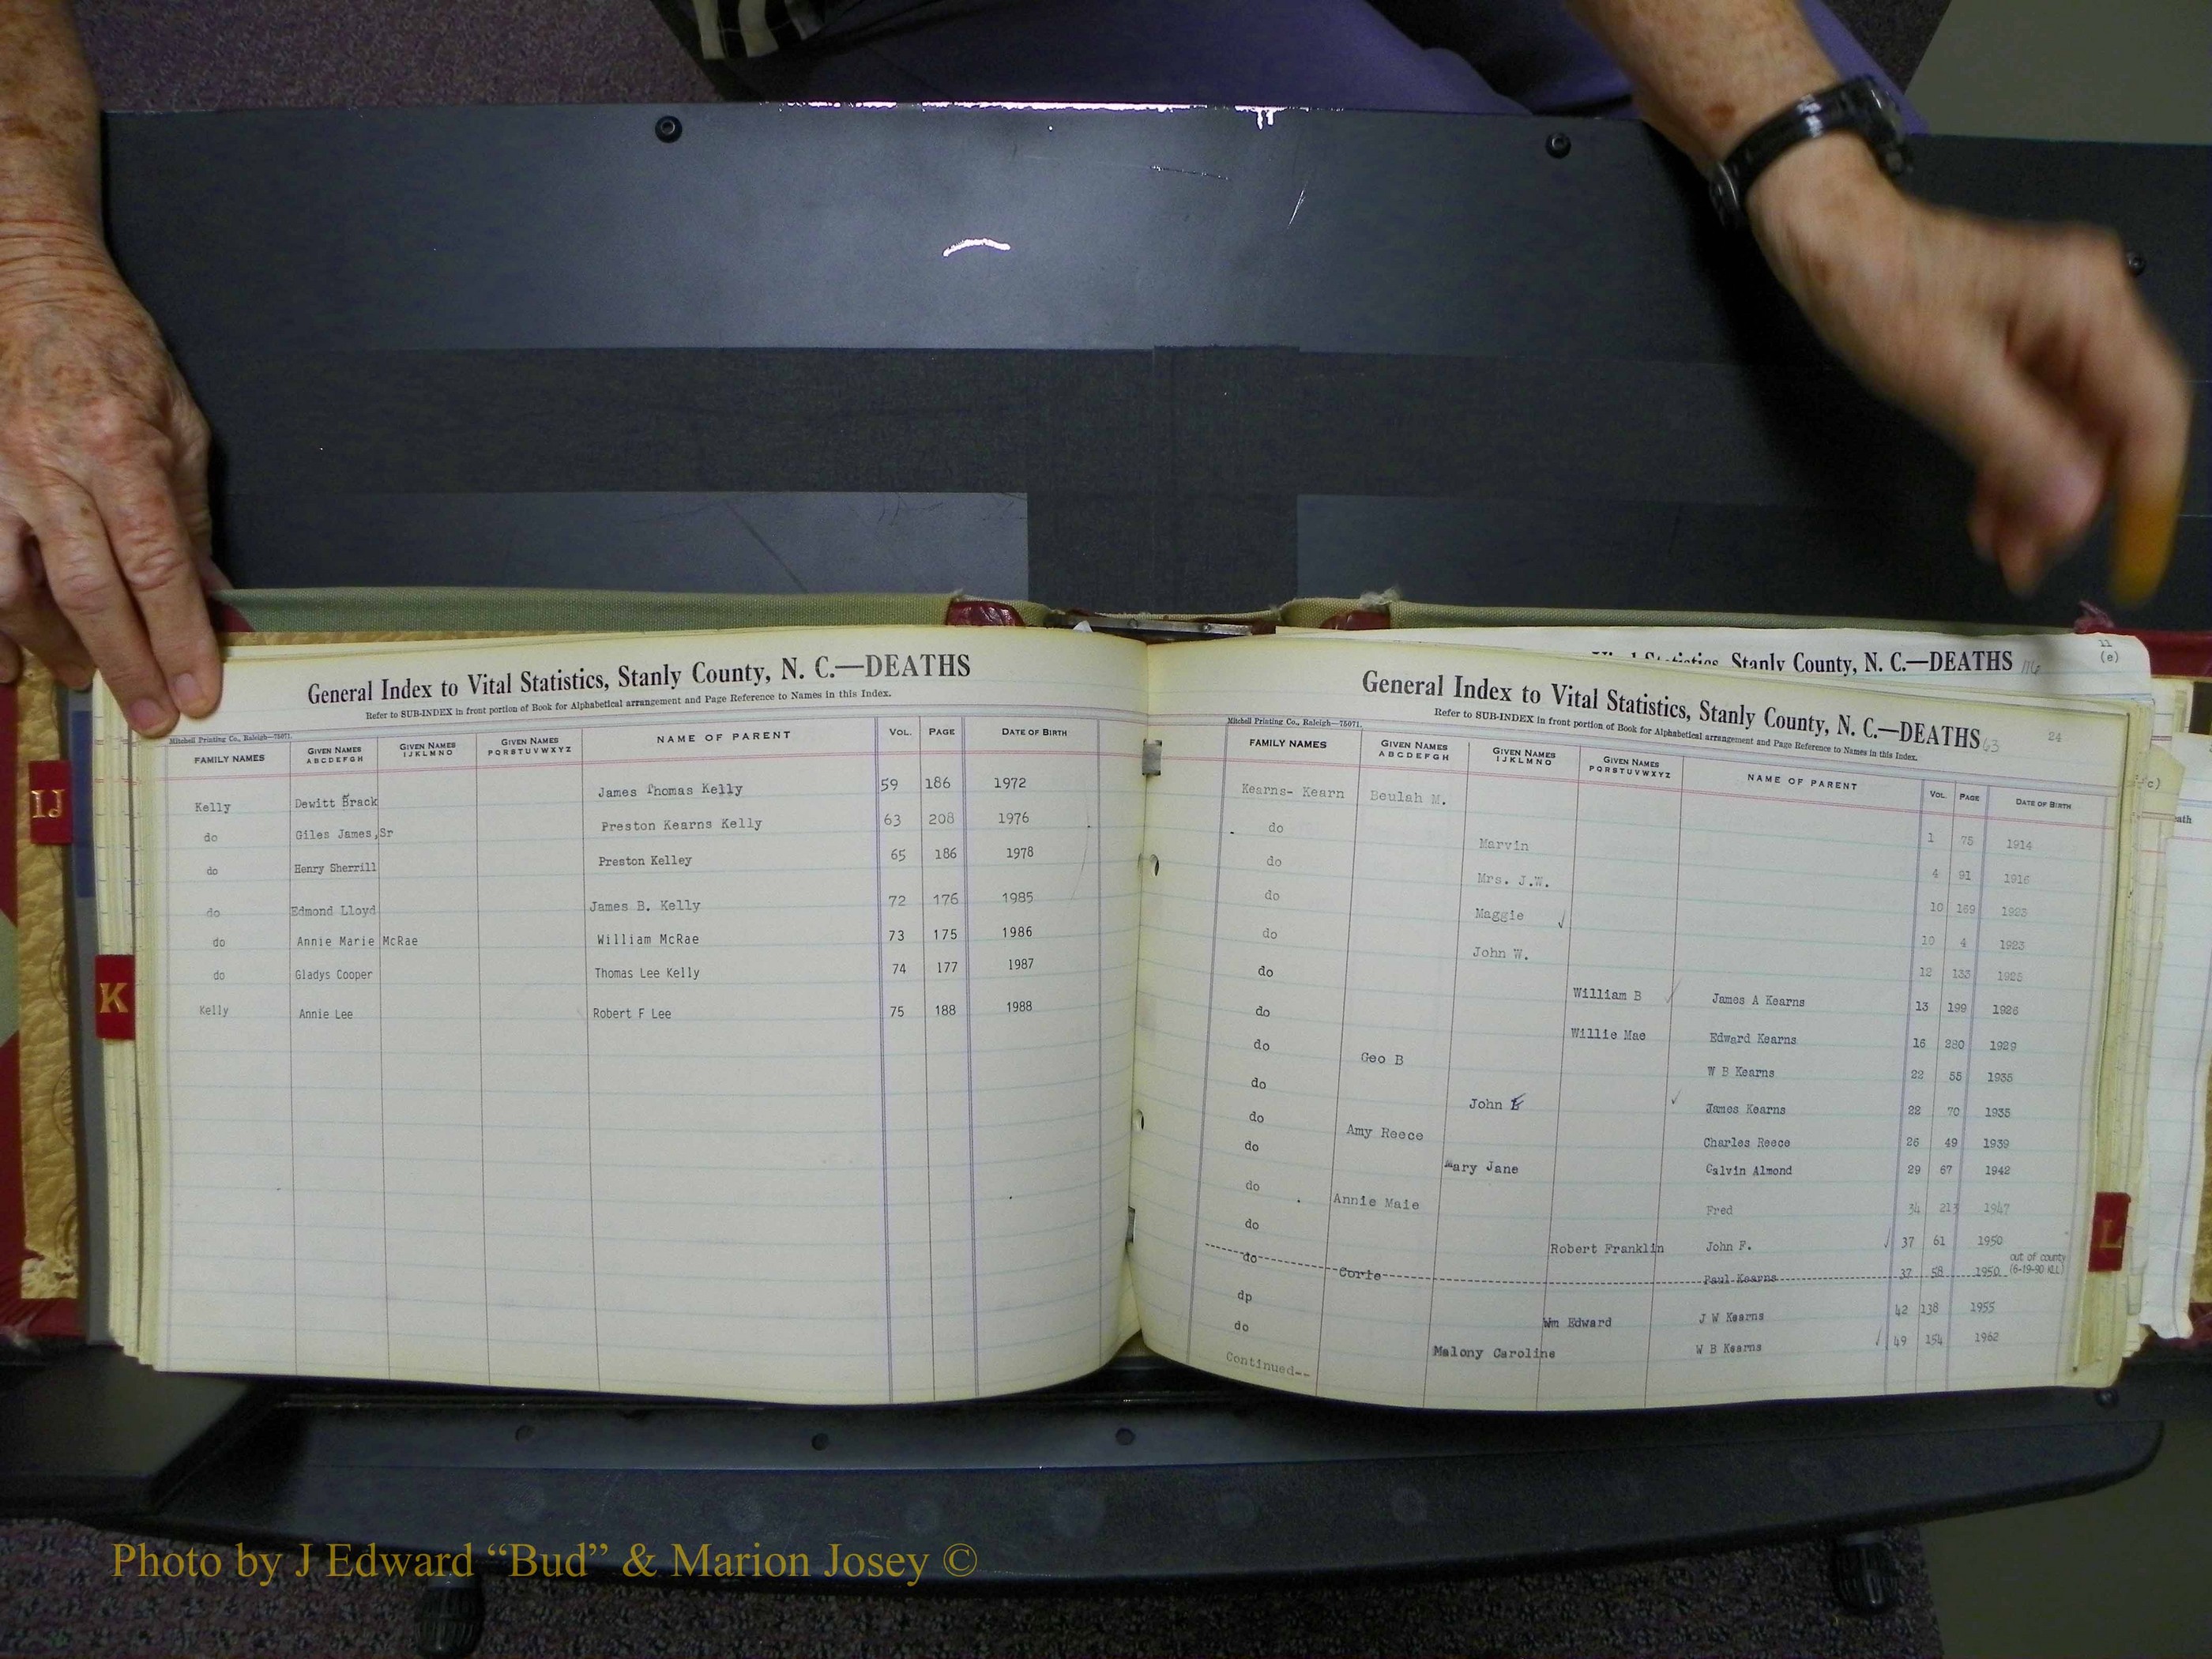 General Index to Vital Statistics, Stanly County, N. C.—DEATHS
Refer to SUB-INDEX in front portion of Book for Alphabetical arrangement and Page Reference to Names in this Index.
Mitchell Printing Co., Raleigh—75071.
FAMILY NAMES GIVEN NAMES ABCDEFGH GIVEN NAMES IJKLMNO GIVEN NAMES PQRSTUVWXYZ NAME OF PARENT VOL. PAGE DATE OF BIRTH
Kelly Dewitt Brack James Thomas Kelly 59 186 1972
do Giles James,Sr Preston Kearns Kelly 63 208 1976
do Henry Sherrill Preston Kelley 65 186 1978
do Edmond Lloyd James B. Kelly 72 176 1985
do Annie Marie McRae William McRae 73 175 1986
do Gladys Cooper Thomas Lee Kelly 74 177 1987
Kelly Annie Lee Robert F Lee 75 188 1988
IJ
K
Stanly County, N. C.—DEATHS 116
11
(e)
General Index to Vital Statistics, Stanly County, N. C.—DEATHS 63
24
Refer to SUB-INDEX in front portion of Book for Alphabetical arrangement and Page Reference to Names in this Index.
Mitchell Printing Co., Raleigh—75071.
FAMILY NAMES GIVEN NAMES ABCDEFGH GIVEN NAMES IJKLMNO GIVEN NAMES PQRSTUVWXYZ NAME OF PARENT VOL. PAGE DATE OF BIRTH
Kearns- Kearn Beulah M. 1 75 1914
do Marvin 4 91 1916
do Mrs. J.W. 10 169 1923
do Maggie 10 4 1923
do John W. 12 133 1925
do William B James A Kearns 13 199 1926
do Willie Mae Edward Kearns 16 280 1929
do Geo B W B Kearns 22 55 1935
do John E James Kearns 22 70 1935
do Amy Reece Charles Reece 26 49 1939
do Mary Jane Calvin Almond 29 67 1942
do Annie Maie Fred 34 213 1947
do Robert Franklin John F. 37 61 1950
do Corie Paul Kearns 37 58 1950 out of county (6-19-90 KLL)
dp Wm Edward J W Kearns 42 138 1955
do Malony Caroline W B Kearns 49 154 1962
Continued--
L
Photo by J Edward “Bud” & Marion Josey ©